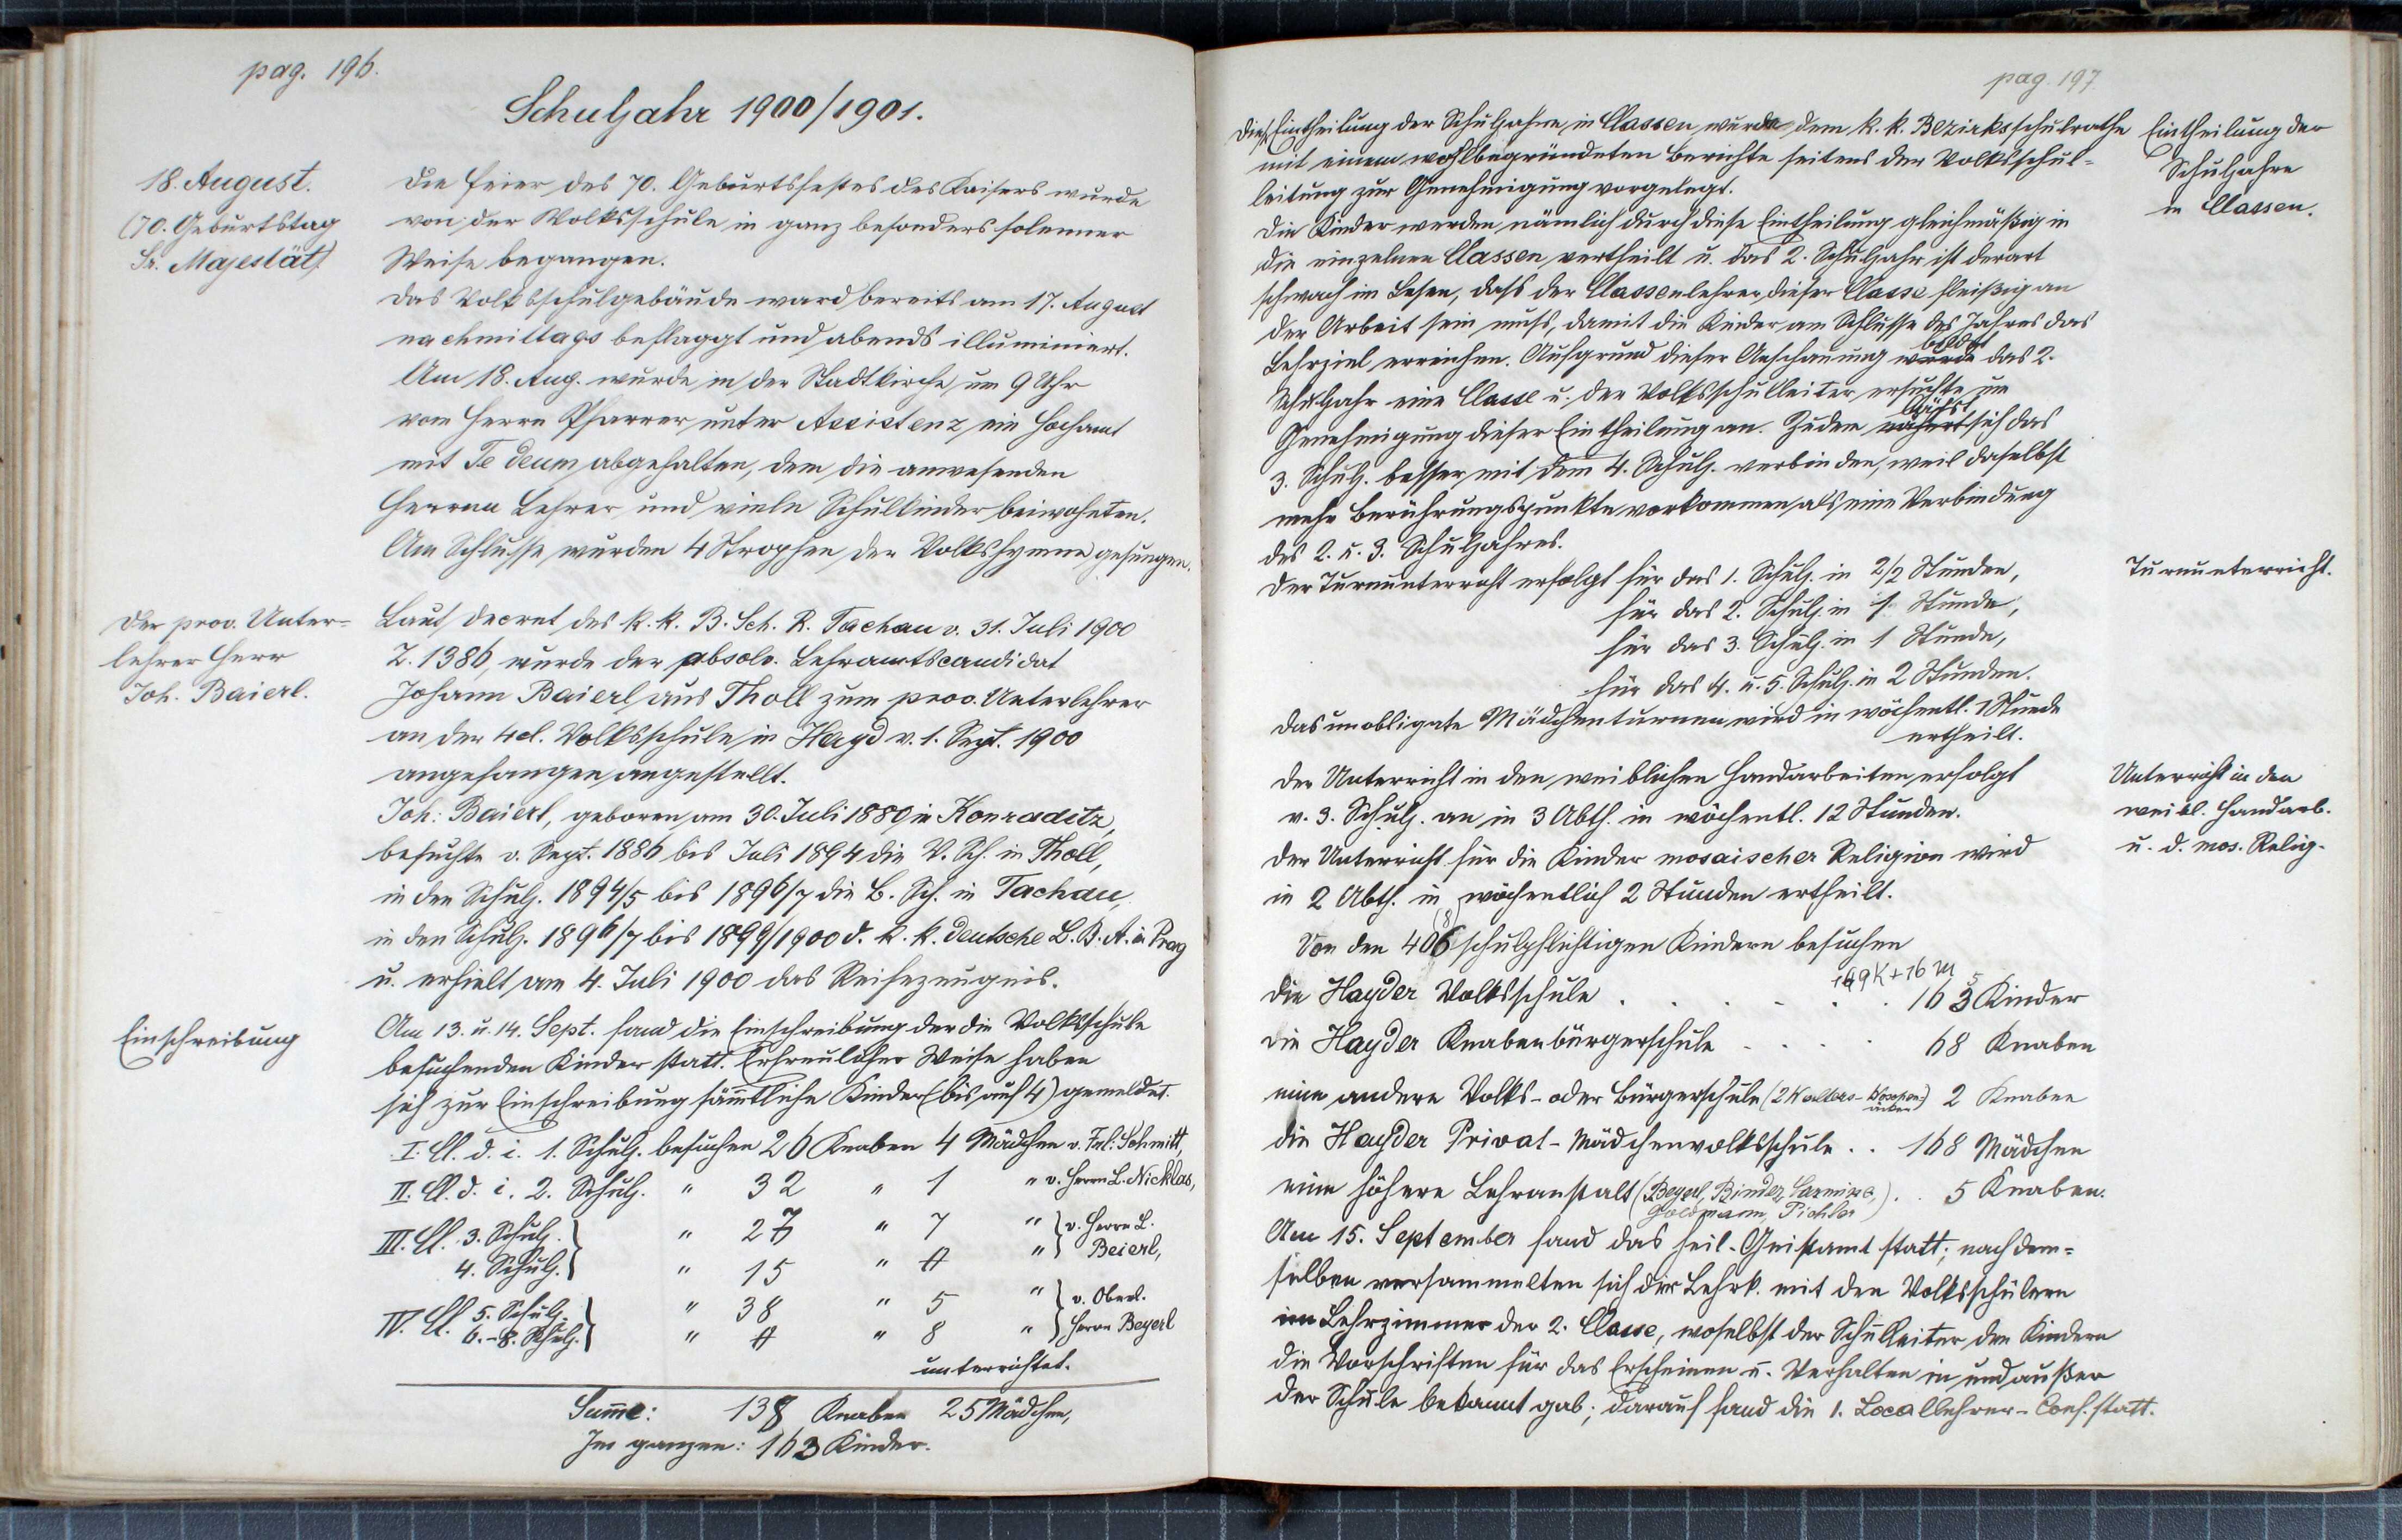 pag. 196.
Schuljahr 1900/1901.
18. August.
(70. Geburtstag
Sr. Majestät)
Die Feier des 70. Geburtsfestes des Kaisers wurde
von der Volksschule in ganz besonders solenner
Weise begangen.
Das Volksschulgebäude ward bereits am 17. August
nachmittags beflaggt und abends illuminiert.
Am 18. Aug. wurde in der Stadtkirche um 9 Uhr
vom Herrn Pfarrer unter Assistenz ein Hochamt
mit Te deum abgehalten, dem die anwesenden
Herren Lehrer und viele Schulkinder beiwohnten.
Am Schlusse wurden 4 Strophen der Volkshymne gesungen.
Der prov. Unter-
lehrer Herr
Joh. Baierl.
Laut Decret des k. k. B. Sch. R. Tachau v. 31. Juli 1900
Z. 1386, wurde der absolv. Lehramtscandidat
Johann Baierl aus Tholl zum prov. Unterlehrer
an der 4cl. Volksschule in Hayd v. 1. Sept. 1900
angefangen angestellt.
Joh: Baierl, geboren am 30. Juli 1880 in Konraditz,
besuchte v. Sept. 1886 bis Juli 1894 die V. Sch. in Tholl,
in den Schulj. 1894/5 bis 1896/7 die B. Sch. in Tachau,
in den Schulj. 1896/7 bis 1899/1900 d. k. k. deutsche L. B. A. in Prag
u. erhielt am 4. Juli 1900 das Reifezeugnis.
Einschreibung
Am 13. u. 14. Sept. fand die Einschreibung der die Volksschule
besuchenden Kinder statt. Erfreulicher Weise haben
sich zur Einschreibung sämtliche Kinder (bis auf 4) gemeldet.
I. Cl. d. i. 1. Schulj. besuchen 26 Knaben 4 Mädchen v. Frl. Schmitt,
II. Cl. d. i. 2. Schulj. " 32 " 1 " v. Herrn L. Nicklas,
III. Cl. 3. Schulj. " 27 " 7 " v. Herrn L.
4. Schulj. " 15 " " Beierl,
IV. Cl. 5. Schulj. " 38 " 5 " v. Oberl.
6.-8. Schulj. " " 8 " Herrn Beyerl
unterrichtet.
Summe: 138 Knaben 25 Mädchen,
Im ganzen: 163 Kinder.
pag. 197.
Diese Eintheilung der Schuljahre in Classen wurde dem k. k. Bezirksschulrathe
mit einem wohlbegründeten Berichte seitens der Volksschul-
leitung zur Genehmigung vorgelegt.
Eintheilung der
Schuljahre
in Classen.
Die Kinder werden nämlich durch diese Eintheilung gleichmäßig in
die einzelnen Classen vertheilt u. das 2. Schuljahr ist derart
schwach im Lesen, dass der Classenlehrer dieser Classe fleißig an
der Arbeit sein muss, damit die Kinder am Schlusse des Jahres das
bildet
Lehrziel erreichen. Aufgrund dieser Anschauung wurde das 2.
Schuljahr eine Classe u. der Volksschulleiter ersuchte um
läßt
Genehmigung dieser Eintheilung an. Zudem nähert sich das
3. Schulj. besser mit dem 4. Schulj. verbinden, weil daselbst
mehr Berührungspunkte vorkommen als eine Verbindung
des 2. u. 3. Schuljahres.
Der Turnunterricht erfolgt für das 1. Schulj. in 2/2 Stunden,
Turnunterricht.
für das 2. Schulj. in 1. Stunde,
für das 3. Schulj. in 1 Stunde,
für das 4. u. 5. Schulj. in 2 Stunden.
Das unobligate Mädchenturnen wird in wöchentl. 1 Stunde
ertheilt.
Der Unterricht in den weiblichen Handarbeiten erfolgt
v. 3. Schulj. an in 3 Abth. in wöchentl. 12 Stunden.
Der Unterricht für die Kinder mosaischer Religion wird
in 2 Abth. in wöchentlich 2 Stunden ertheilt.
Unterricht in den
weibl. Handarb.
u. d. mos. Relig.
(8)
Von den 406 schulpflichtigen Kindern besuchen
149K+16M
5
die Hayder Volksschule . . . . . 163 Kinder
die Hayder Knabenbürgerschule . . . . 68 Knaben
eine andere Volks- oder Bürgerschule (2 Walters- 2 Knaben
die Hayder Privat-Mädchenvolksschule . . 168 Mädchen
eine höhere Lehranstalt (Beyerl, Binder, . . 5 Knaben.
Goldmann, Pichler)
Am 15. September fand das heil. Geistamt statt; nach dem-
selben versammelten sich der Lehrk. mit den Volksschülern
im Lehrzimmer der 2. Classe, woselbst der Schulleiter den Kindern
die Vorschriften für das Erscheinen u. Verhalten in und außer
der Schule bekannt gab; darauf fand die 1. Locallehrer-Conf. statt.